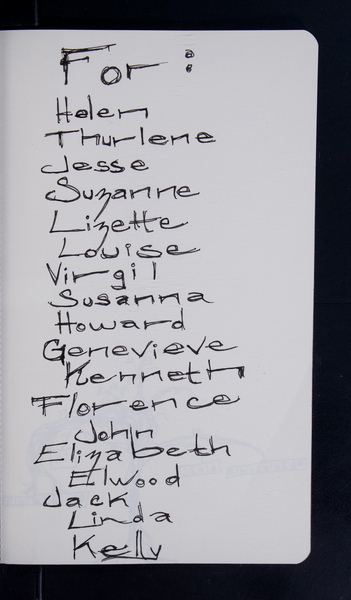 For:
Helen
Thurlene
Jesse
Suzanne
Lizette
Louise
Virgil
Susanna
Howard
Genevieve
Kenneth
Florence
John
Elizabeth
Elwood
Jack
Linda
Kelly